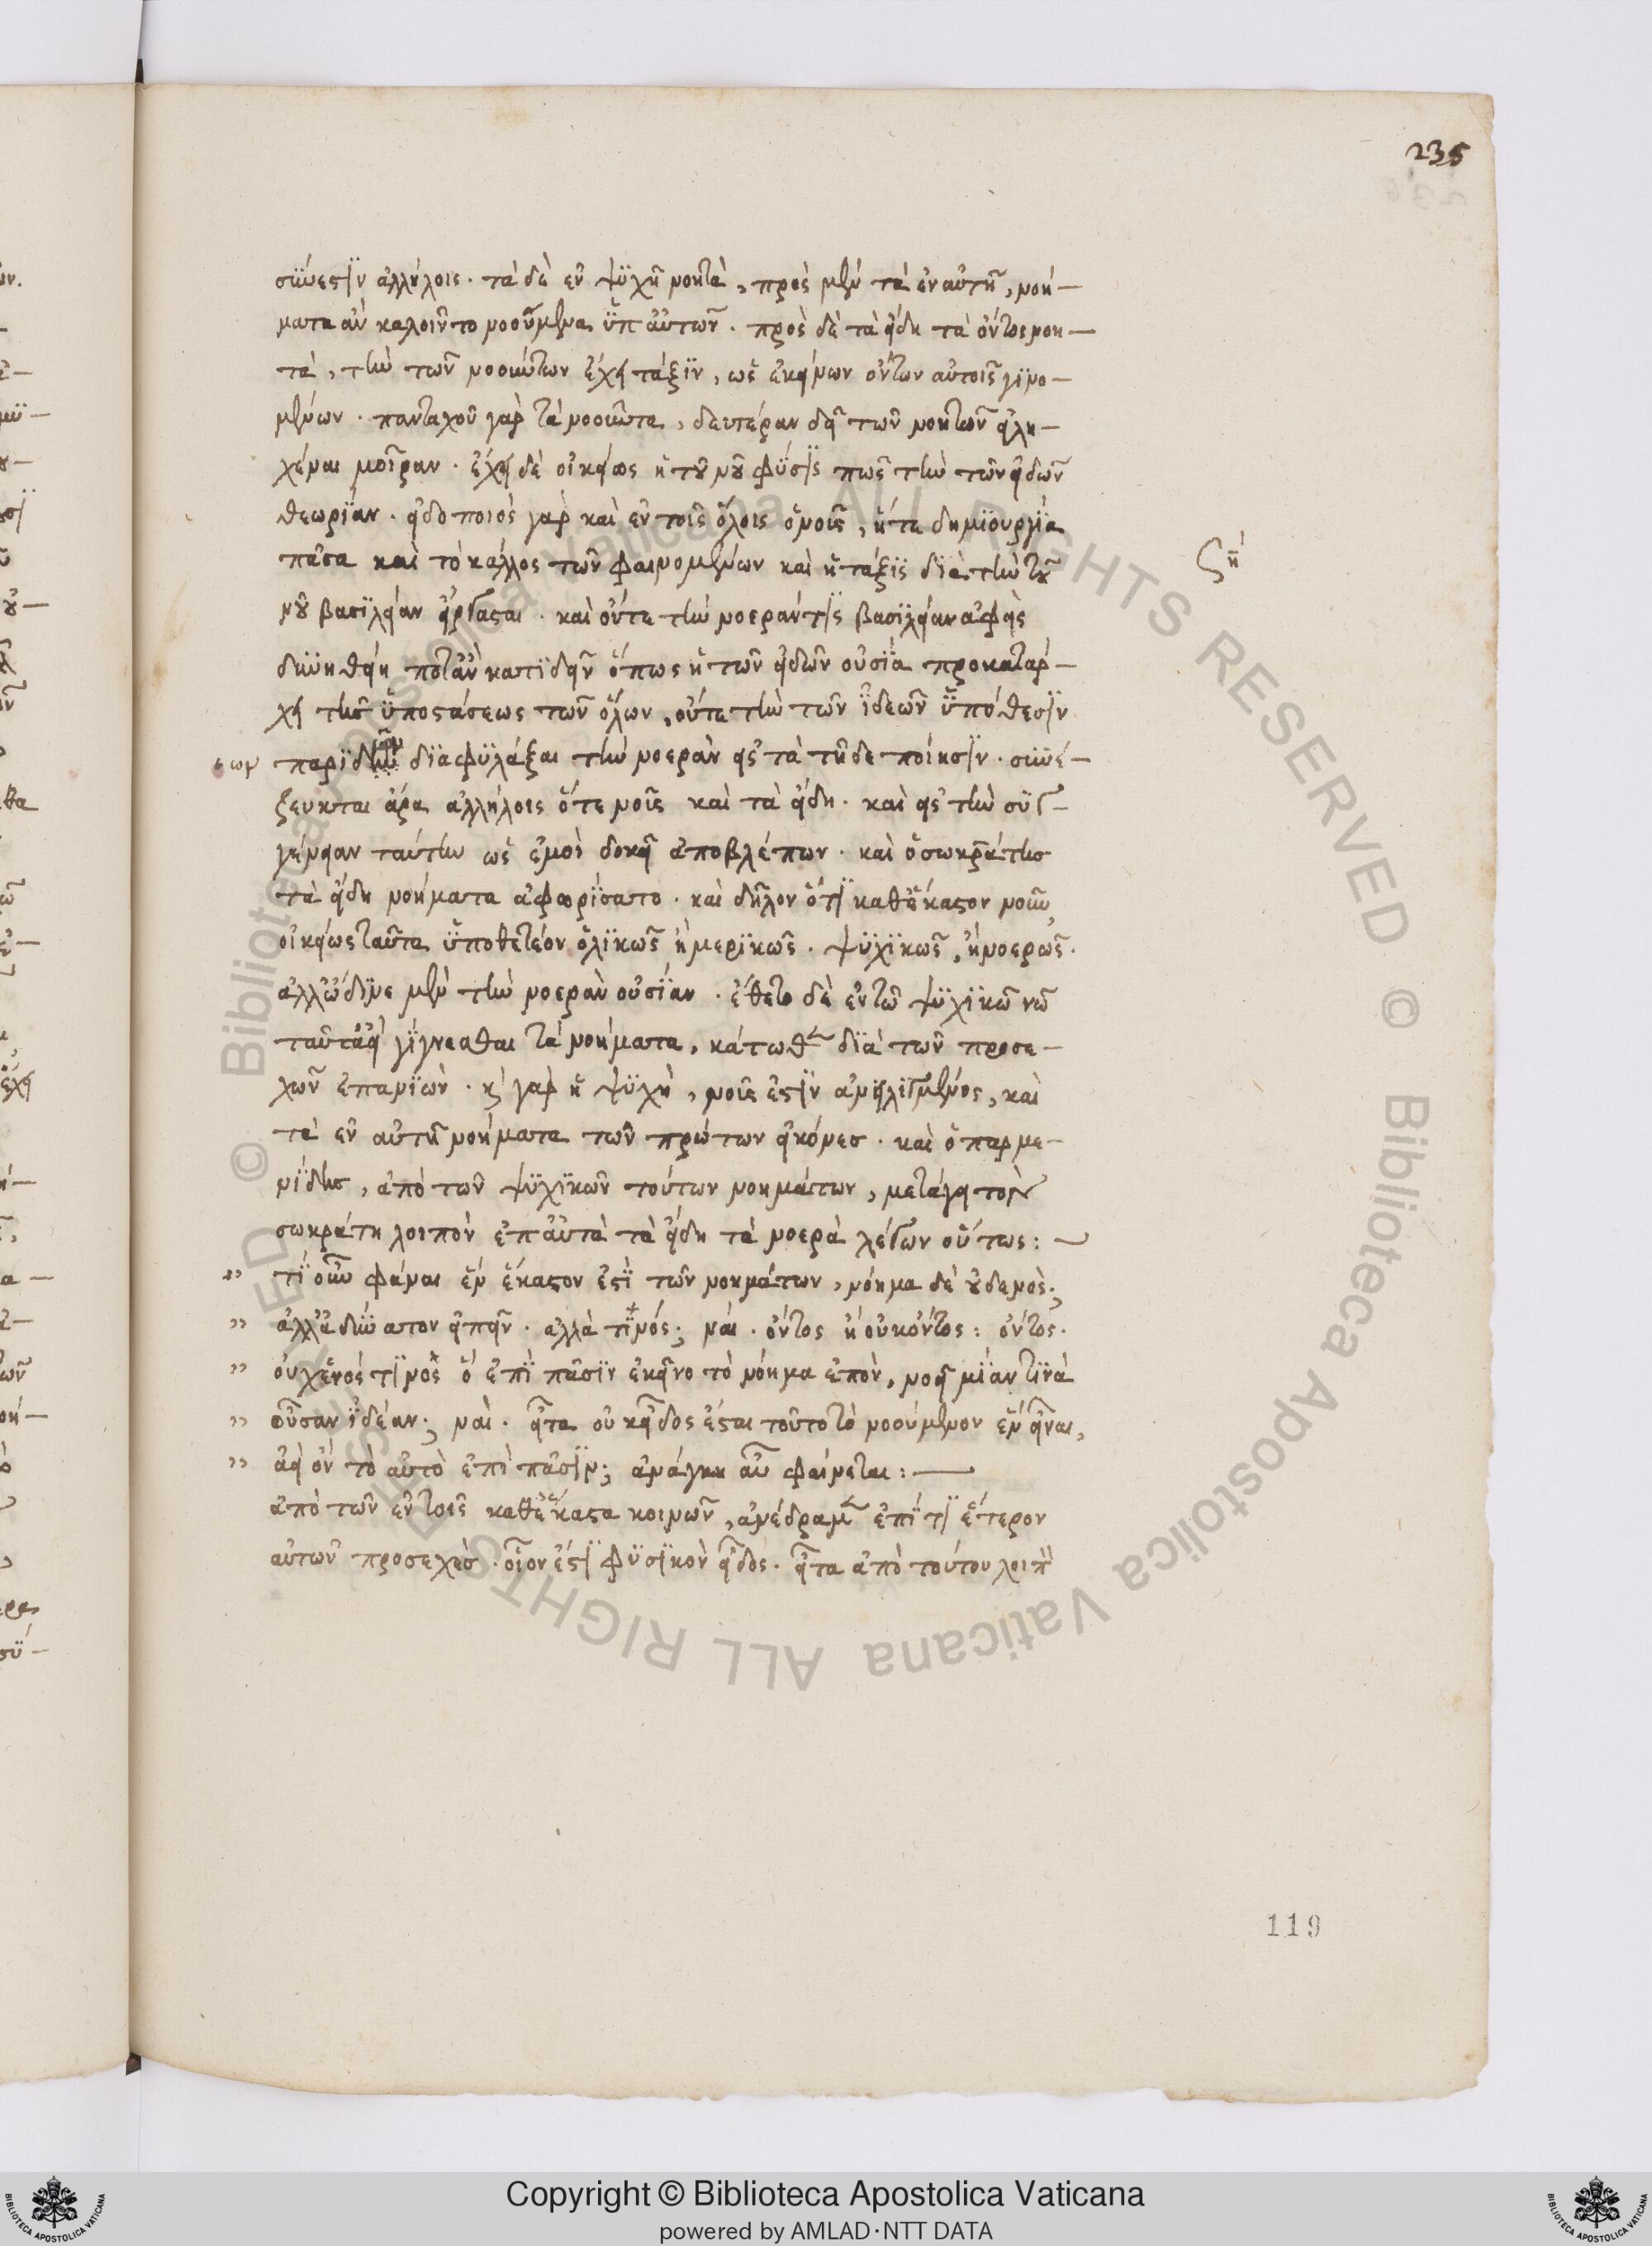 235
σύνεστιν ἀλλήλοις· τὰ δὲ ἐν ψυχῆ νοητὰ, πρὸς μὲν τὰ ἐν αὐτῆ, νοή-
ματα ἂν καλοῖντο νοούμενα ὑπ' αὐτῶν· πρὸς δὲ τὰ εἴδη τὰ ὄντως νοη-
τὰ, τὴν τῶν νοούντων ἔχει τάξιν, ὡς ἐκείνων ὄντων αὐτοῖς γινο-
μένων· πανταχοῦ γὰρ τὰ νοοῦντα, δευτέραν δεῖ τῶν νοητῶν εἰλη-
χέναι μοῖραν· ἔχει δὲ οἰκείως ἡ τοῦ νοῦ φύσις πως τὴν τῶν εἰδῶν
θεωρίαν· εἰδοποιὸς γὰρ καὶ ἐν τοῖς ὅλοις ὁ νοῦς, ἥτε δημιουργία
πᾶσα καὶ τὸ κάλλος τῶν φαινομένων καὶ ἡ τάξις διὰ τὴν τοῦ
νοῦ βασιλείαν εἴργασται· καὶ οὔτε τὴν νοερὰν τίς βασιλείαν ἀφεὶς
δυνηθείη ποτ' ἂν κατιδεῖν ὅπως ἡ τῶν εἰδῶν οὐσία προκατάρ-
χει τῆς ὑποστάσεως τῶν ὅλων, οὔτε τὴν τῶν ἰδεῶν ὑπόθεσιν
παριδὼν διαφυλάξαι τὴν νοερὰν εἰς τὰ τῆδε ποίησιν· συνέ-
ζευκται ἄρα ἀλλήλοις ὅτε νοῦς καὶ τὰ εἴδη· καὶ εἰς τὴν συγ-
γένειαν ταύτην ὡς ἐμοὶ δοκεῖ ἀποβλέπων· καὶ ὁ σωκράτης
τὰ εἴδη νοήματα ἀφωρίσατο· καὶ δῆλον ὅτι καθ' ἕκαστον νοῦν
οἰκείως ταῦτα ὑποθετέον ὁλικῶς ἢ μερικῶς· ψυχικῶς, ἢ νοερῶς·
ἀλλ' ὤδινε μὲν τὴν νοερὰν οὐσίαν· ἔθετο δὲ ἐν τῶ ψυχικῶ νῶ
γίγνεσθαι τὰ νοήματα, κάτωθεν διὰ τῶν προσε-
χῶν ἐπανιών· καὶ γὰρ ἡ ψυχὴ, νοῦς ἐστιν ἀνειλιγμένος, καὶ
τὰ ἐν αὐτῆ νοήματα τῶν πρώτων εἰκόνες· καὶ ὁ παρμε-
νίδης, ἀπὸ τῶν ψυχικῶν τούτων νοημάτων, μετάγει τὸν
σωκράτη λοιπὸν ἐπ' αὐτὰ τὰ εἴδη τὰ νοερὰ λέγων οὕτως:
" τί οὖν φάναι ἓν ἕκαστον ἐστὶ τῶν νοημάτων, νόημα δὲ οὐδενὸς;
" ἀλλ' ἀδύνατον εἰπεῖν· ἀλλὰ τινός; ναί· ὄντος ἢ οὐκ ὄντος: ὄντος·
" οὐχ ἑνός τινος ὃ ἐπὶ πᾶσιν ἐκεῖνο τὸ νόημα ἐπὸν, νοεῖ μίαν τινὰ
" οὖσαν ἰδέαν; ναὶ· εἶτα οὐκ εἶδος ἔσται τοῦτο τὸ νοούμενον ἓν εἶναι,
" ἀεὶ ὂν τὸ αὐτὸ ἐπὶ πᾶσιν; ἀνάγκη αὖ φαίνεται:
ἀπὸ τῶν ἐν τοῖς καθ' ἕκαστα κοινῶν, ἀνέδραμεν ἐπί τι ἕτερον
αὐτῶν προσεχὲς· οἷόν ἐστι φυσικὸν εἶδος· εἶτα ἀπὸ τούτου λοιπὸν
119
Copyright © Biblioteca Apostolica Vaticana
powered by AMLAD·NTT DATA